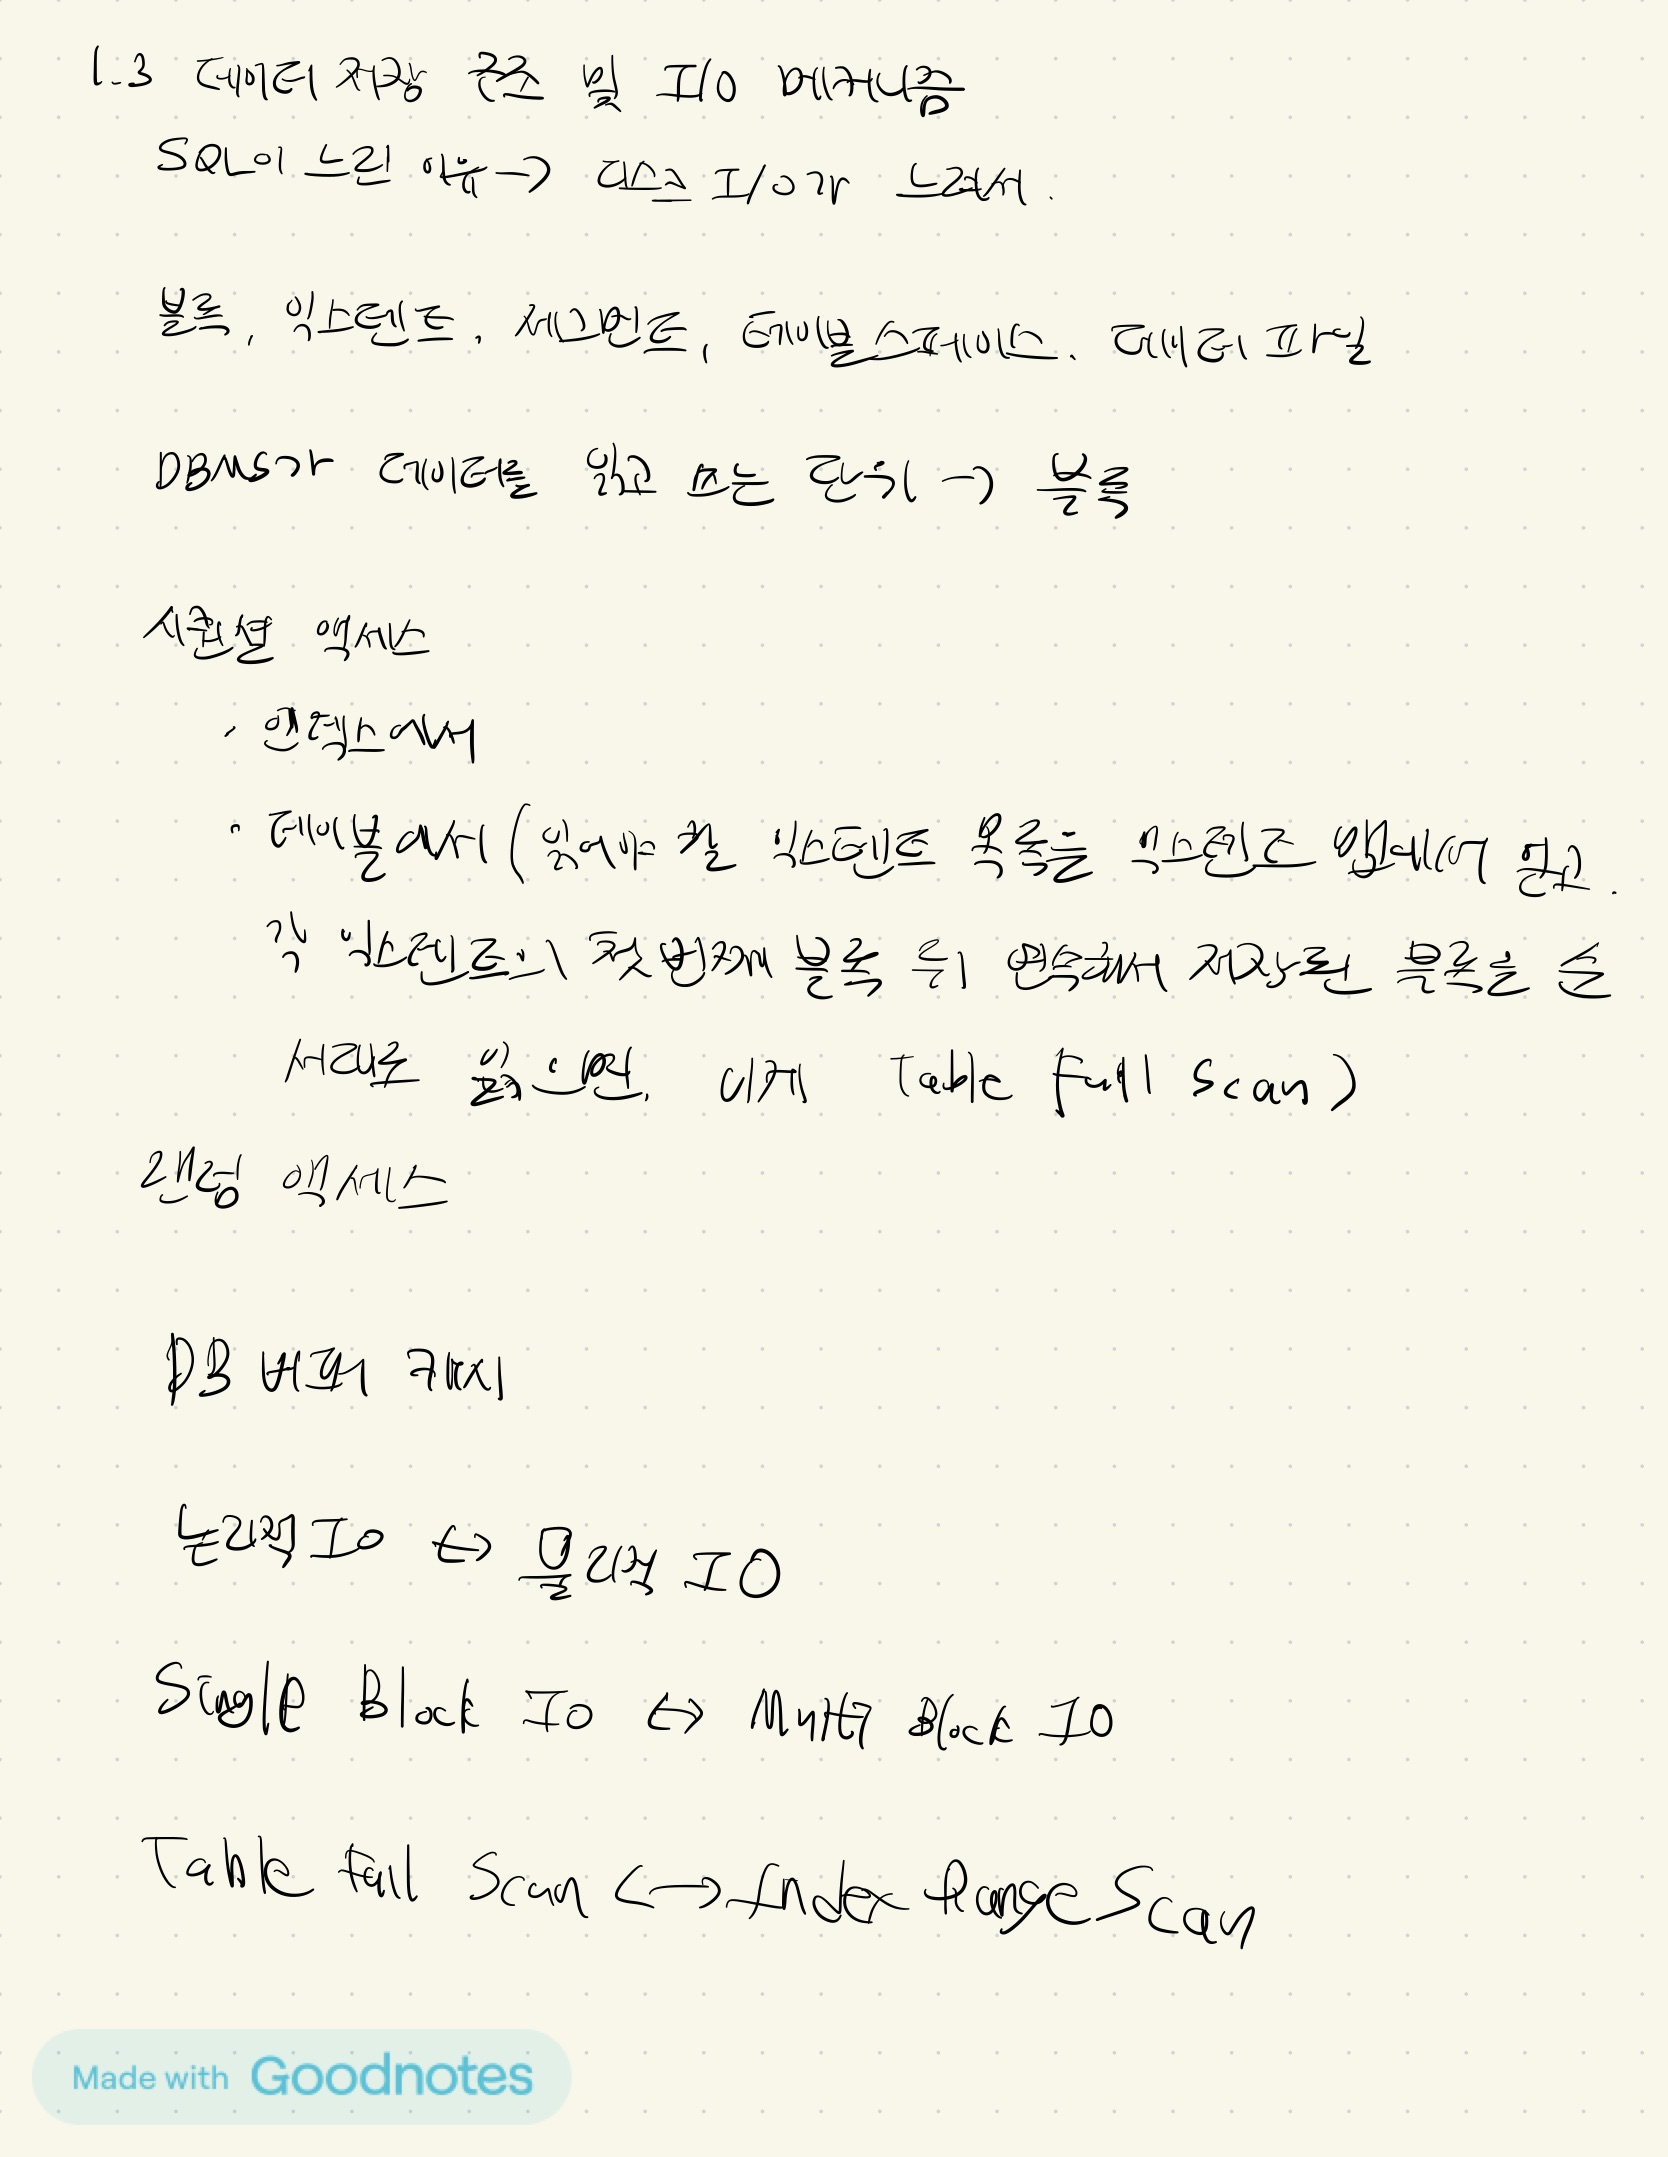 1.3 데이터 저장 구조 및 I/O 메커니즘
SQL이 느린 이유 → 디스크 I/O가 느려서.
블록, 익스텐트, 세그먼트, 테이블스페이스, 데이터 파일
DBMS가 데이터를 읽고 쓰는 단위 → 블록
시퀀셜 액세스
· 인덱스에서
· 테이블에서 (읽어야 할 익스텐트 목록을 익스텐트 맵에서 얻고.
각 익스텐트의 첫 번째 블록 뒤 연속해서 저장된 블록을 순
서대로 읽으면, 이게 Table Full Scan)
랜덤 액세스
DB 버퍼 캐시
논리적 IO ↔ 물리적 IO
Single Block IO ↔ Multi Block IO
Table Full Scan ↔ Index Range Scan
Made with Goodnotes